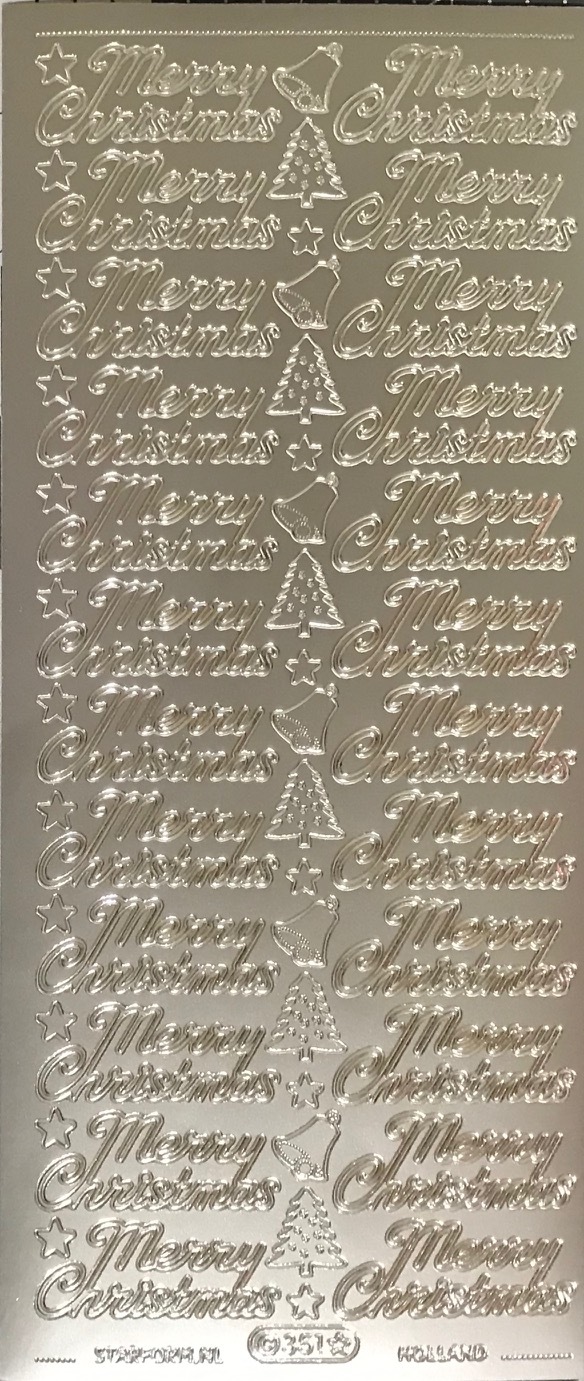 Merry
Christmas
Merry
Christmas
Merry
Christmas
Merry
Christmas
Merry
Christmas
Merry
Christmas
Merry
Christmas
Merry
Christmas
Merry
Christmas
Merry
Christmas
Merry
Christmas
Merry
Christmas
Merry
Christmas
Merry
Christmas
Merry
Christmas
Merry
Christmas
Merry
Christmas
Merry
Christmas
Merry
Christmas
Merry
Christmas
Merry
Christmas
Merry
Christmas
Merry
Christmas
Merry
Christmas
STARFORM.NL
351
HOLLAND